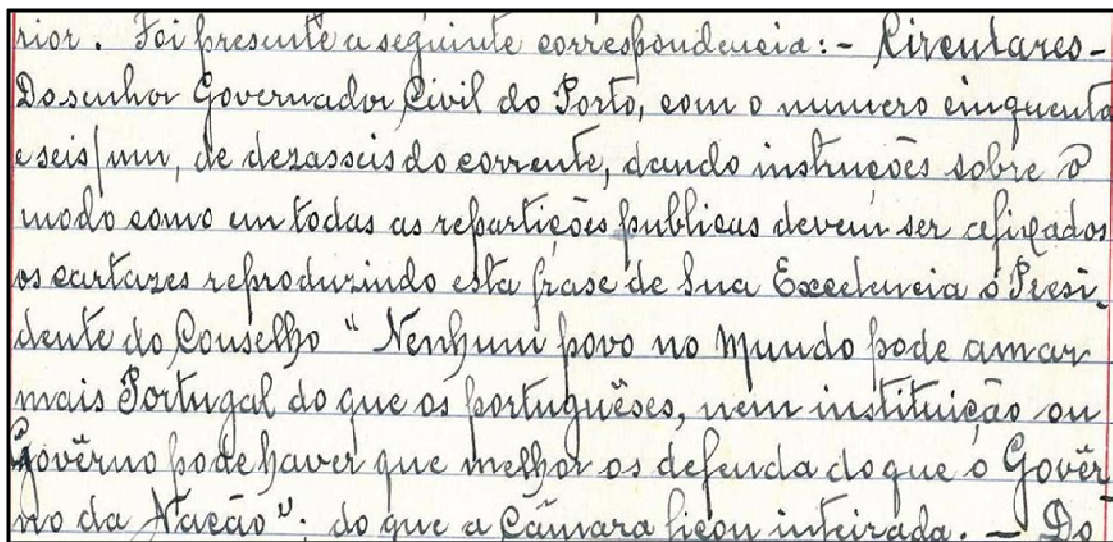 rior. Foi presente a seguinte correspondencia: - Circulares -
Do senhor Governador Civil do Porto, com o numero cinquenta
e seis/um, de dezasseis do corrente, dando instruções sobre o
modo como em todas as repartições publicas devem ser afixados
os cartazes reproduzindo esta frase de Sua Excelencia o Presi-
dente do Conselho “Nenhum povo no mundo pode amar
mais Portugal do que os portuguêses, nem instituição ou
Govêrno pode haver que melhor os defenda do que o Govêr
no da Nação”; do que a Câmara ficou inteirada. - Do